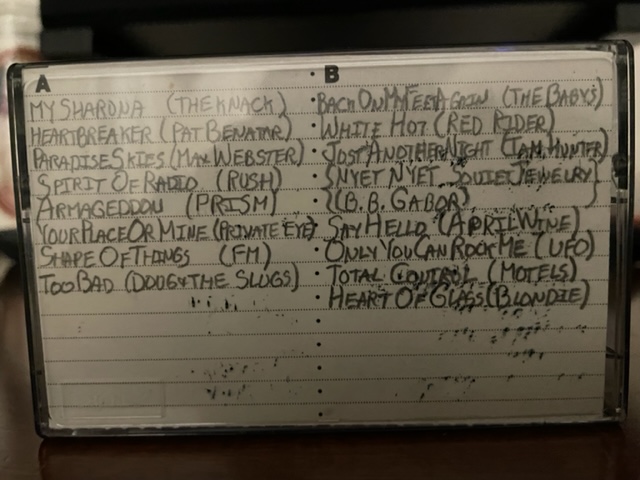 A
MY SHARONA (THE KNACK)
HEARTBREAKER (PAT BENATAR)
PARADISE SKIES (MAX WEBSTER)
SPIRIT OF RADIO (RUSH)
ARMAGEDDON (PRISM)
YOUR PLACE OR MINE (PRIVATE EYE)
SHAPE OF THINGS (FM)
TOO BAD (DOUG & THE SLUGS)
B
BACK ON MY FEET AGAIN (THE BABYS)
WHITE HOT (RED RIDER)
JUST ANOTHER NIGHT (IAN HUNTER)
{NYET NYET SOVIET JEWELRY}
{(B.B. GABOR)}
SAY HELLO (APRIL WINE)
ONLY YOU CAN ROCK ME (UFO)
TOTAL CONTROL (MOTELS)
HEART OF GLASS (BLONDIE)